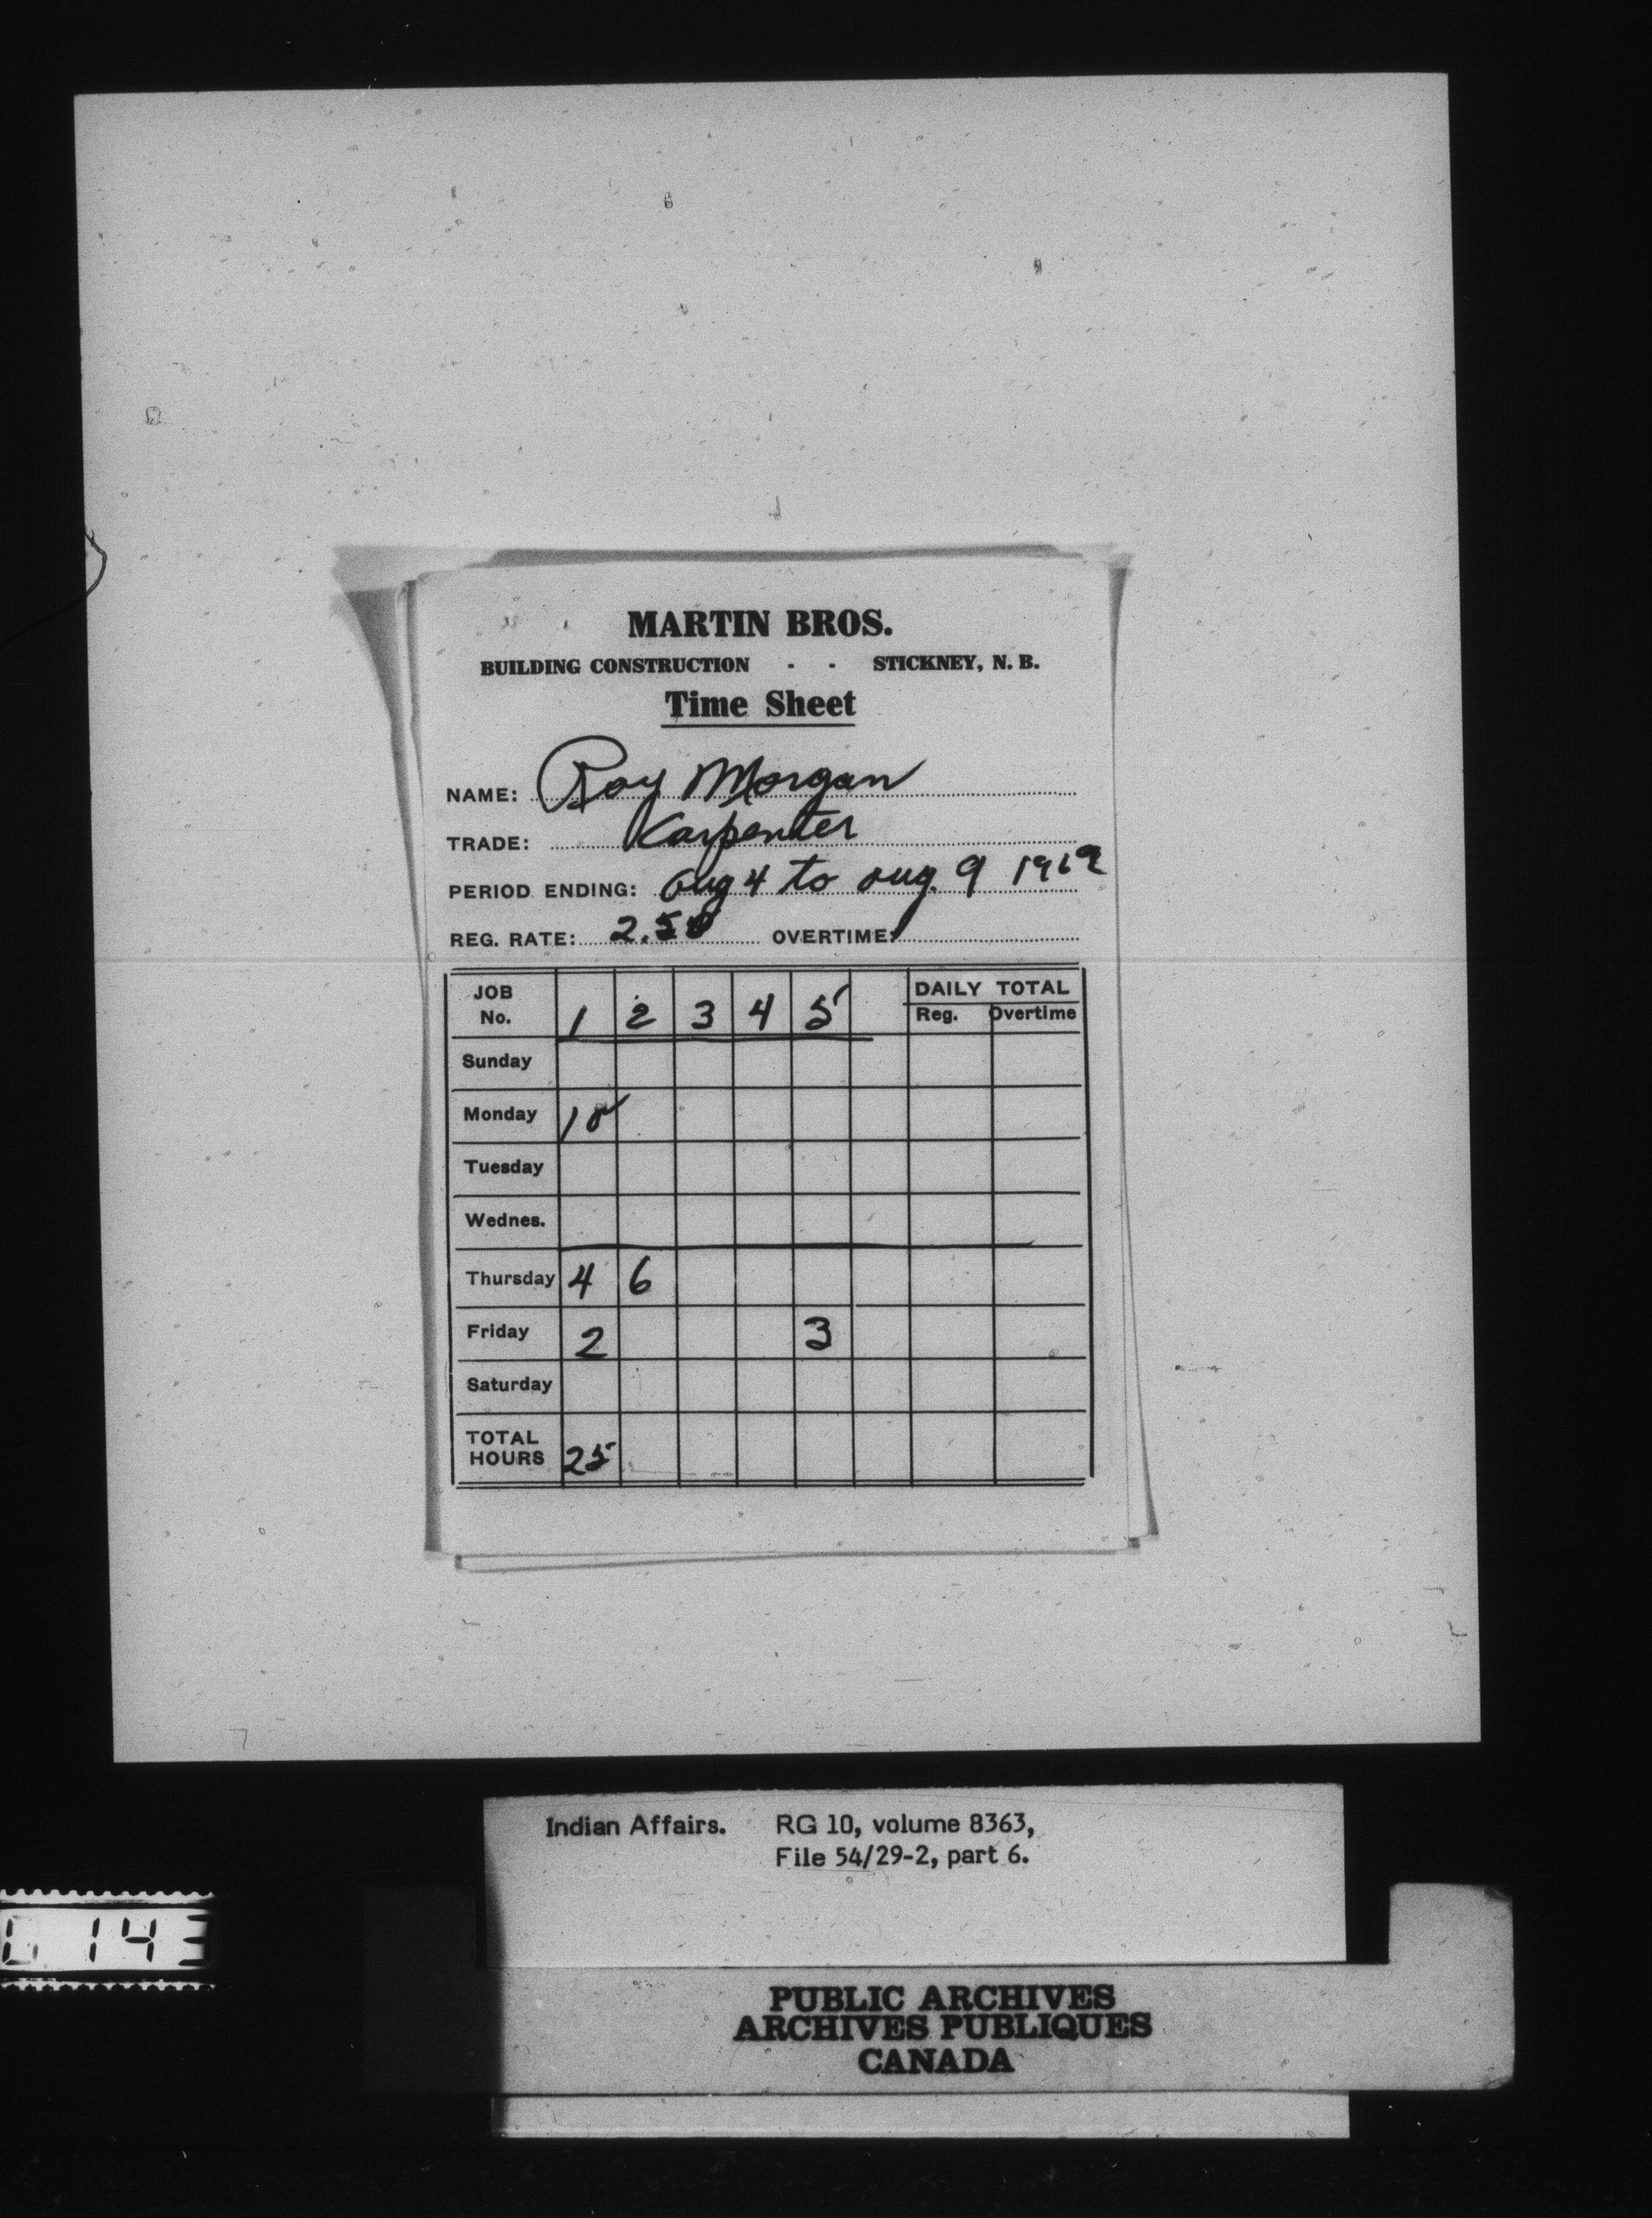 MARTIN BROS.
BUILDING CONSTRUCTION - - STICKNEY, N. B.
Time Sheet
NAME: Roy Morgan
TRADE: Carpenter
PERIOD ENDING: Aug 4 to Aug. 9 1969
REG. RATE: 2.50 OVERTIME:
JOB No. 1 2 3 4 5 DAILY TOTAL
Reg. Overtime
Sunday
Monday 10
Tuesday
Wednes.
Thursday 4 6
Friday 2 3
Saturday
TOTAL HOURS 25
Indian Affairs. RG 10, volume 8363,
File 54/29-2, part 6.
143
PUBLIC ARCHIVES
ARCHIVES PUBLIQUES
CANADA